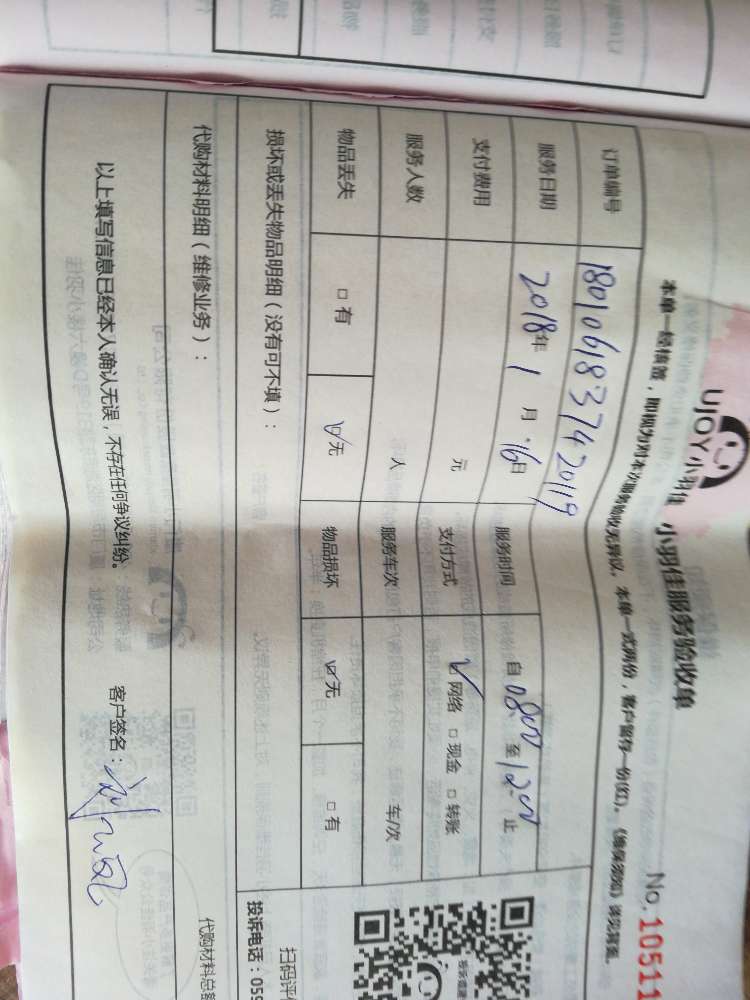 UJOY小羽佳 小羽佳服务验收单
No. 10511
本单一经核签,即视为对本次服务验收无异议。本单一式两份,客户留存一份(红)。《维保须知》详见背面。
订单编号 18010618374 20119
服务日期 2018年1月16日 服务时间 自0800至1200止
支付费用 元 支付方式 ☑网络 □现金 □转账
服务人数 人 服务车次 车/次
物品丢失 □有 ☑无 物品损坏 ☑无 □有
损坏或丢失物品明细(没有可不填):
扫码评
投诉电话:059
代购材料明细(维修业务):
代购材料总
以上填写信息已经本人确认无误,不存在任何争议纠纷。 客户签名: